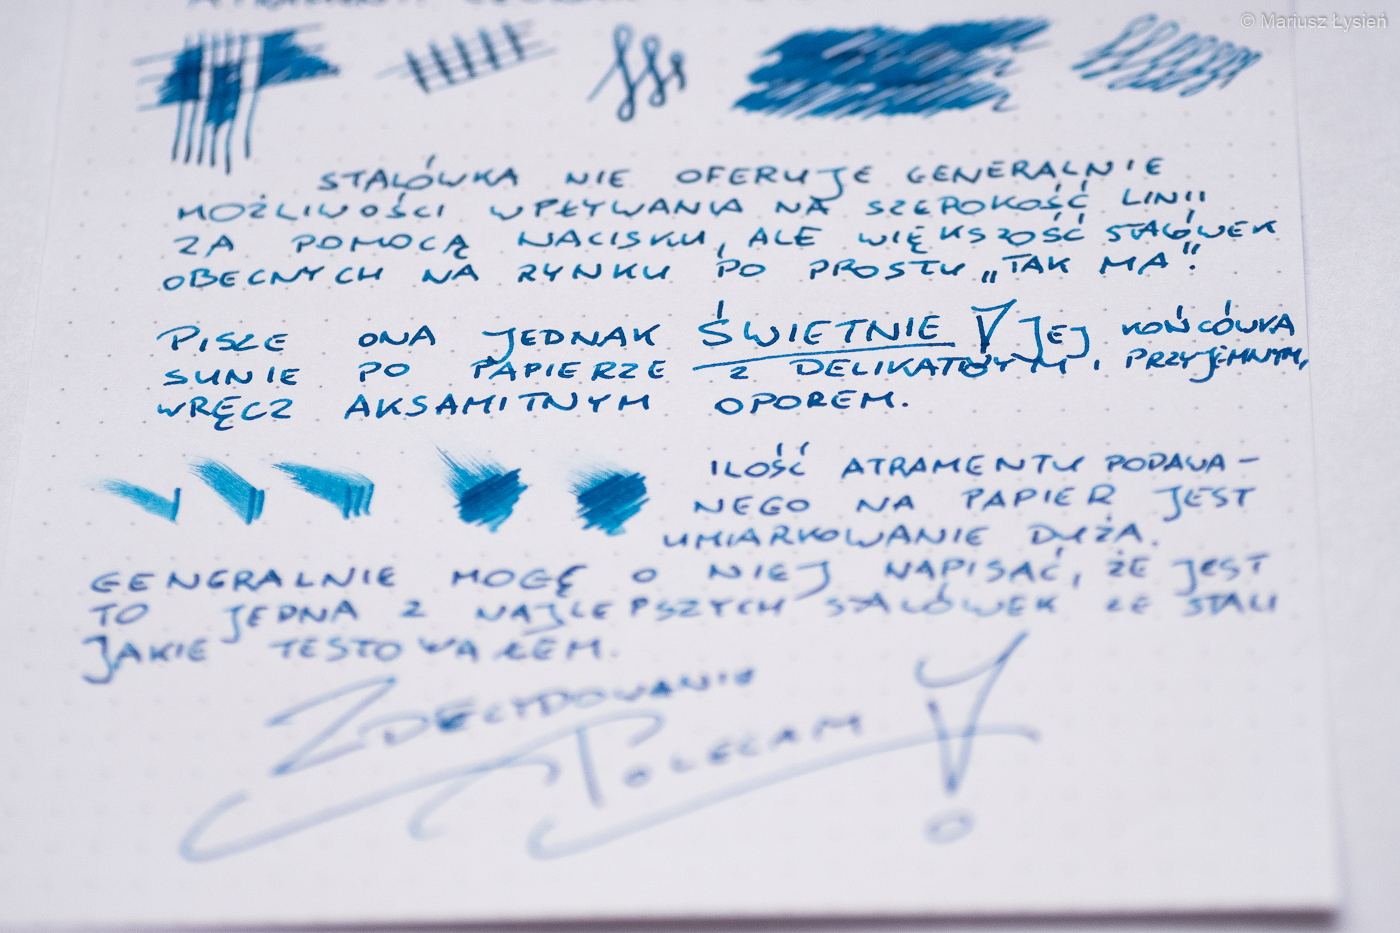 © Mariusz Łysień
STALÓWKA NIE OFERUJE GENERALNIE
MOŻLIWOŚCI WPŁYWANIA NA SZEROKOŚĆ LINII
ZA POMOCĄ NACISKU, ALE WIĘKSZOŚĆ STALÓWEK
OBECNYCH NA RYNKU PO PROSTU „TAK MA”.
PISZE ONA JEDNAK ŚWIETNIE! JEJ KOŃCÓWKA
SUNIE PO PAPIERZE Z DELIKATNYM, PRZYJEMNYM,
WRĘCZ AKSAMITNYM OPOREM.
ILOŚĆ ATRAMENTU PODAWA-
NEGO NA PAPIER JEST
UMIARKOWANIE DUŻA.
GENERALNIE MOGĘ O NIEJ NAPISAĆ, ŻE JEST
TO JEDNA Z NAJLEPSZYCH STALÓWEK ZE STALI
JAKIE TESTOWAŁEM.
ZDECYDOWANIE
POLECAM!